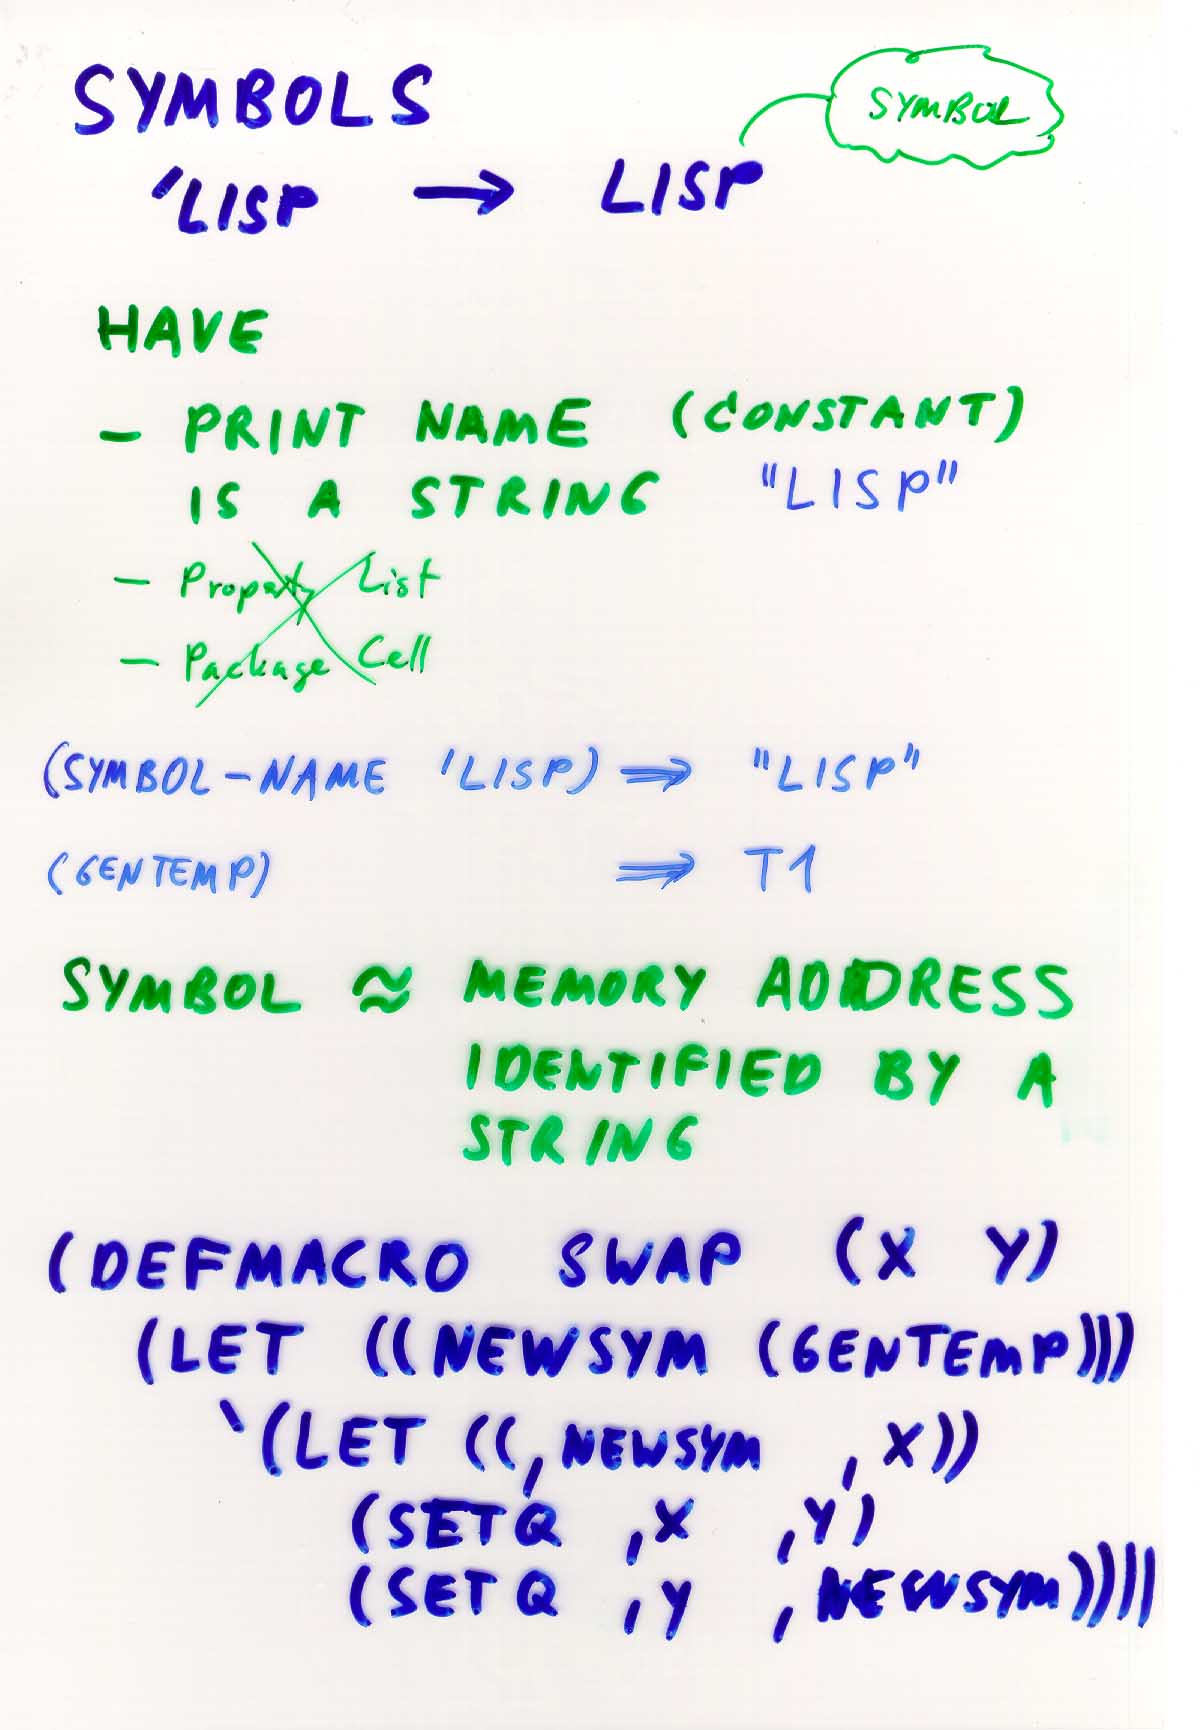 SYMBOLS
SYMBOL
'LISP → LISP
HAVE
- PRINT NAME (CONSTANT)
IS A STRING "LISP"
- Property List
- Package Cell
(SYMBOL-NAME 'LISP) ⇒ "LISP"
(GENTEMP) ⇒ T1
SYMBOL ≈ MEMORY ADDRESS
IDENTIFIED BY A
STRING
(DEFMACRO SWAP (X Y)
(LET ((NEWSYM (GENTEMP)))
`(LET ((,NEWSYM ,X))
(SETQ ,X ,Y)
(SETQ ,Y ,NEWSYM))))